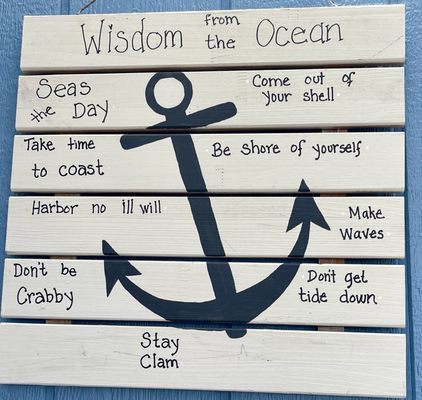 Wisdom from the Ocean
Seas the Day
Come out of your shell
Take time to coast
Be shore of yourself
Harbor no ill will
Make waves
Don't be Crabby
Don't get tide down
Stay Clam